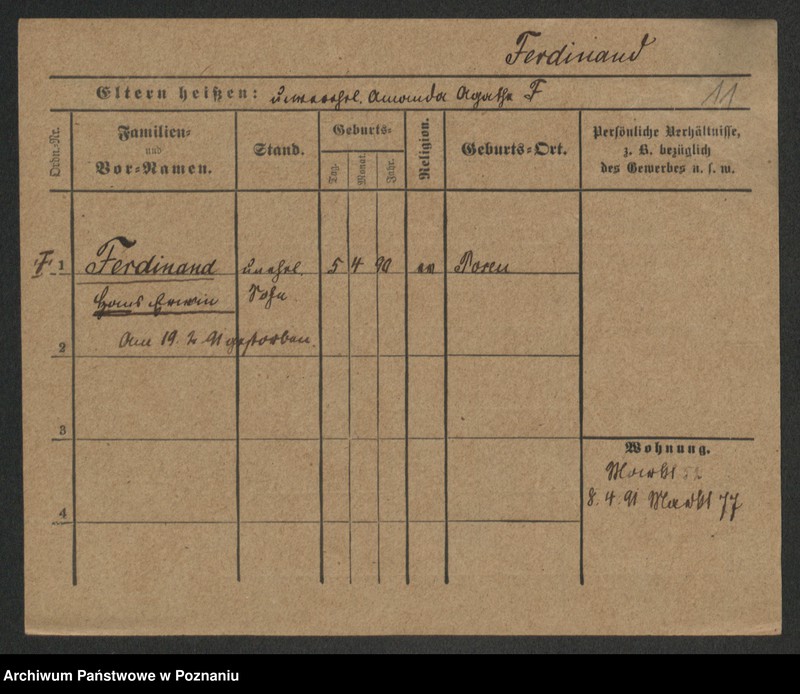 Ferdinand
Eltern heißen: unverehel. Amanda Agathe F
11
Ordn.-Nr.
Familien- und Vor-Namen.
Stand.
Geburts-
Tag.
Monat.
Jahr.
Religion.
Geburts-Ort.
Persönliche Verhältnisse,
z. B. bezüglich
des Gewerbes u. s. w.
1 Ferdinand unehel. 5 4 90 ev Posen
Hans Erwin Sohn
Am 19. 2. 91 gestorben.
2
3
Wohnung.
Markt
8. 4. 91 Markt 77
4
Archiwum Państwowe w Poznaniu